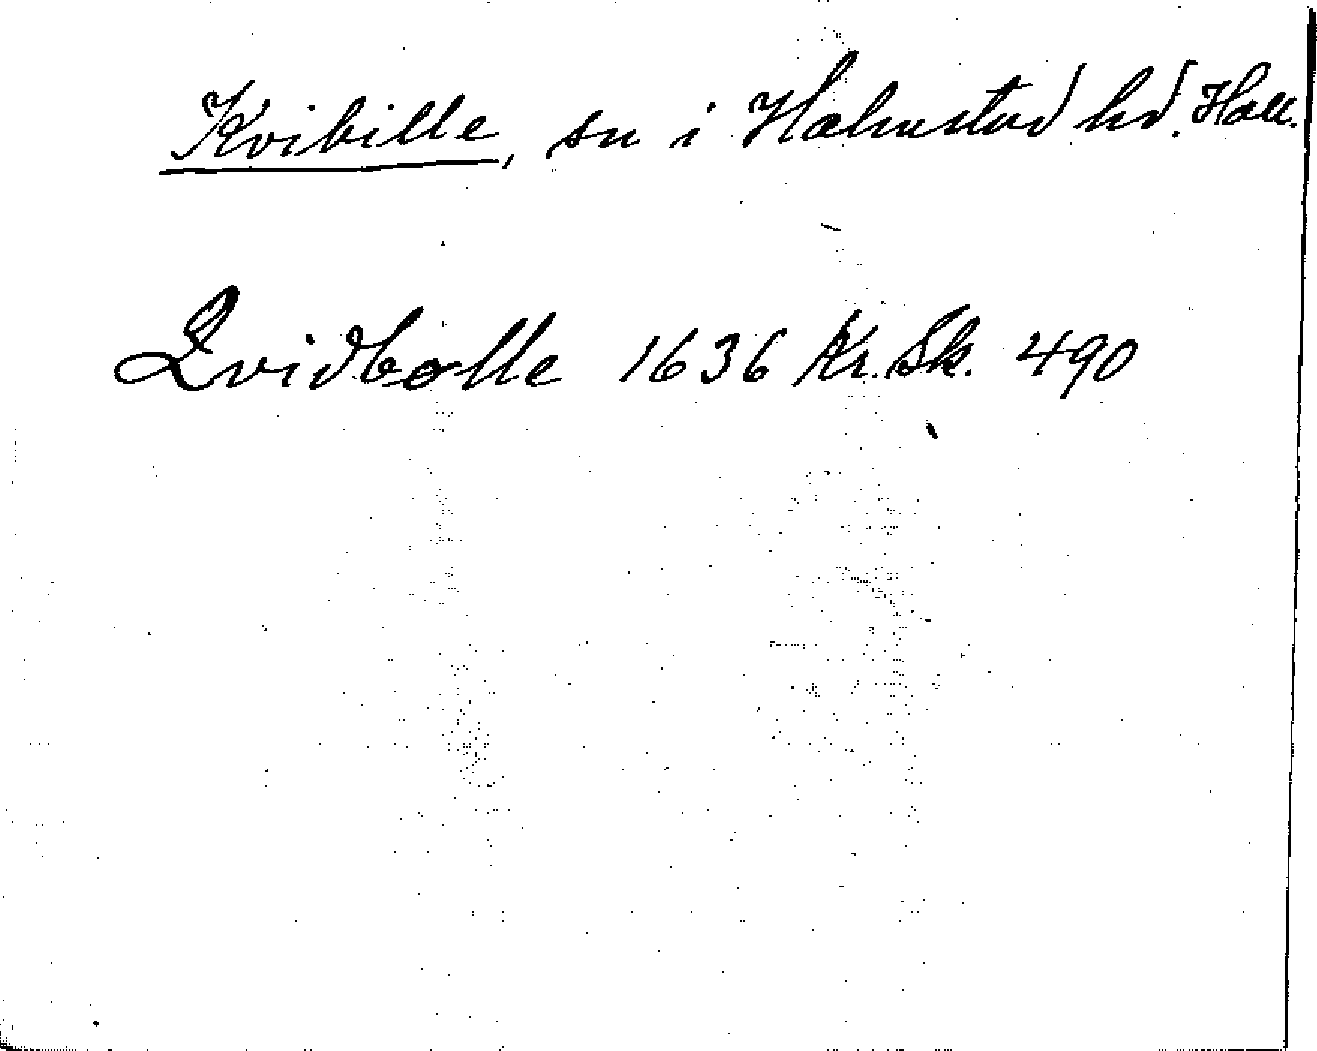 Kvibille, sn i Halmstad hd. Hall.
Qvidbolle 1636 Kr. Sk. 490